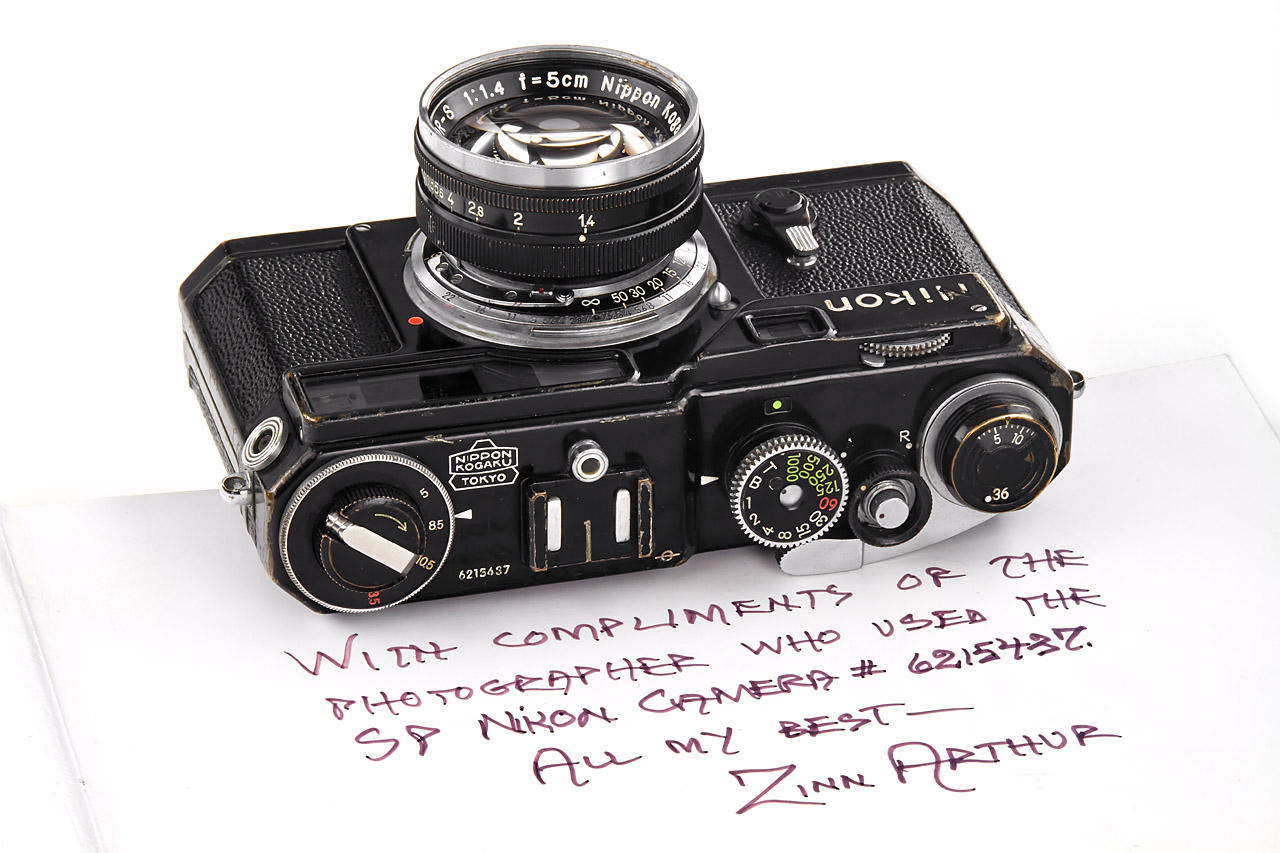 R-S 1:1.4 f=5cm Nippon Kog
4 2.8 2 1.4
∞ 50 30 20 15
22
Nikon
NIPPON
KOGAKU
TOKYO
5
8.5
10.5
3.5
6215437
T B 1 2 4 8 15 30 60 125 250 500 1000
R
5 10
36
WITH COMPLIMENTS OF THE
PHOTOGRAPHER WHO USED THE
SP NIKON CAMERA # 6215437.
ALL MY BEST—
ZINN ARTHUR